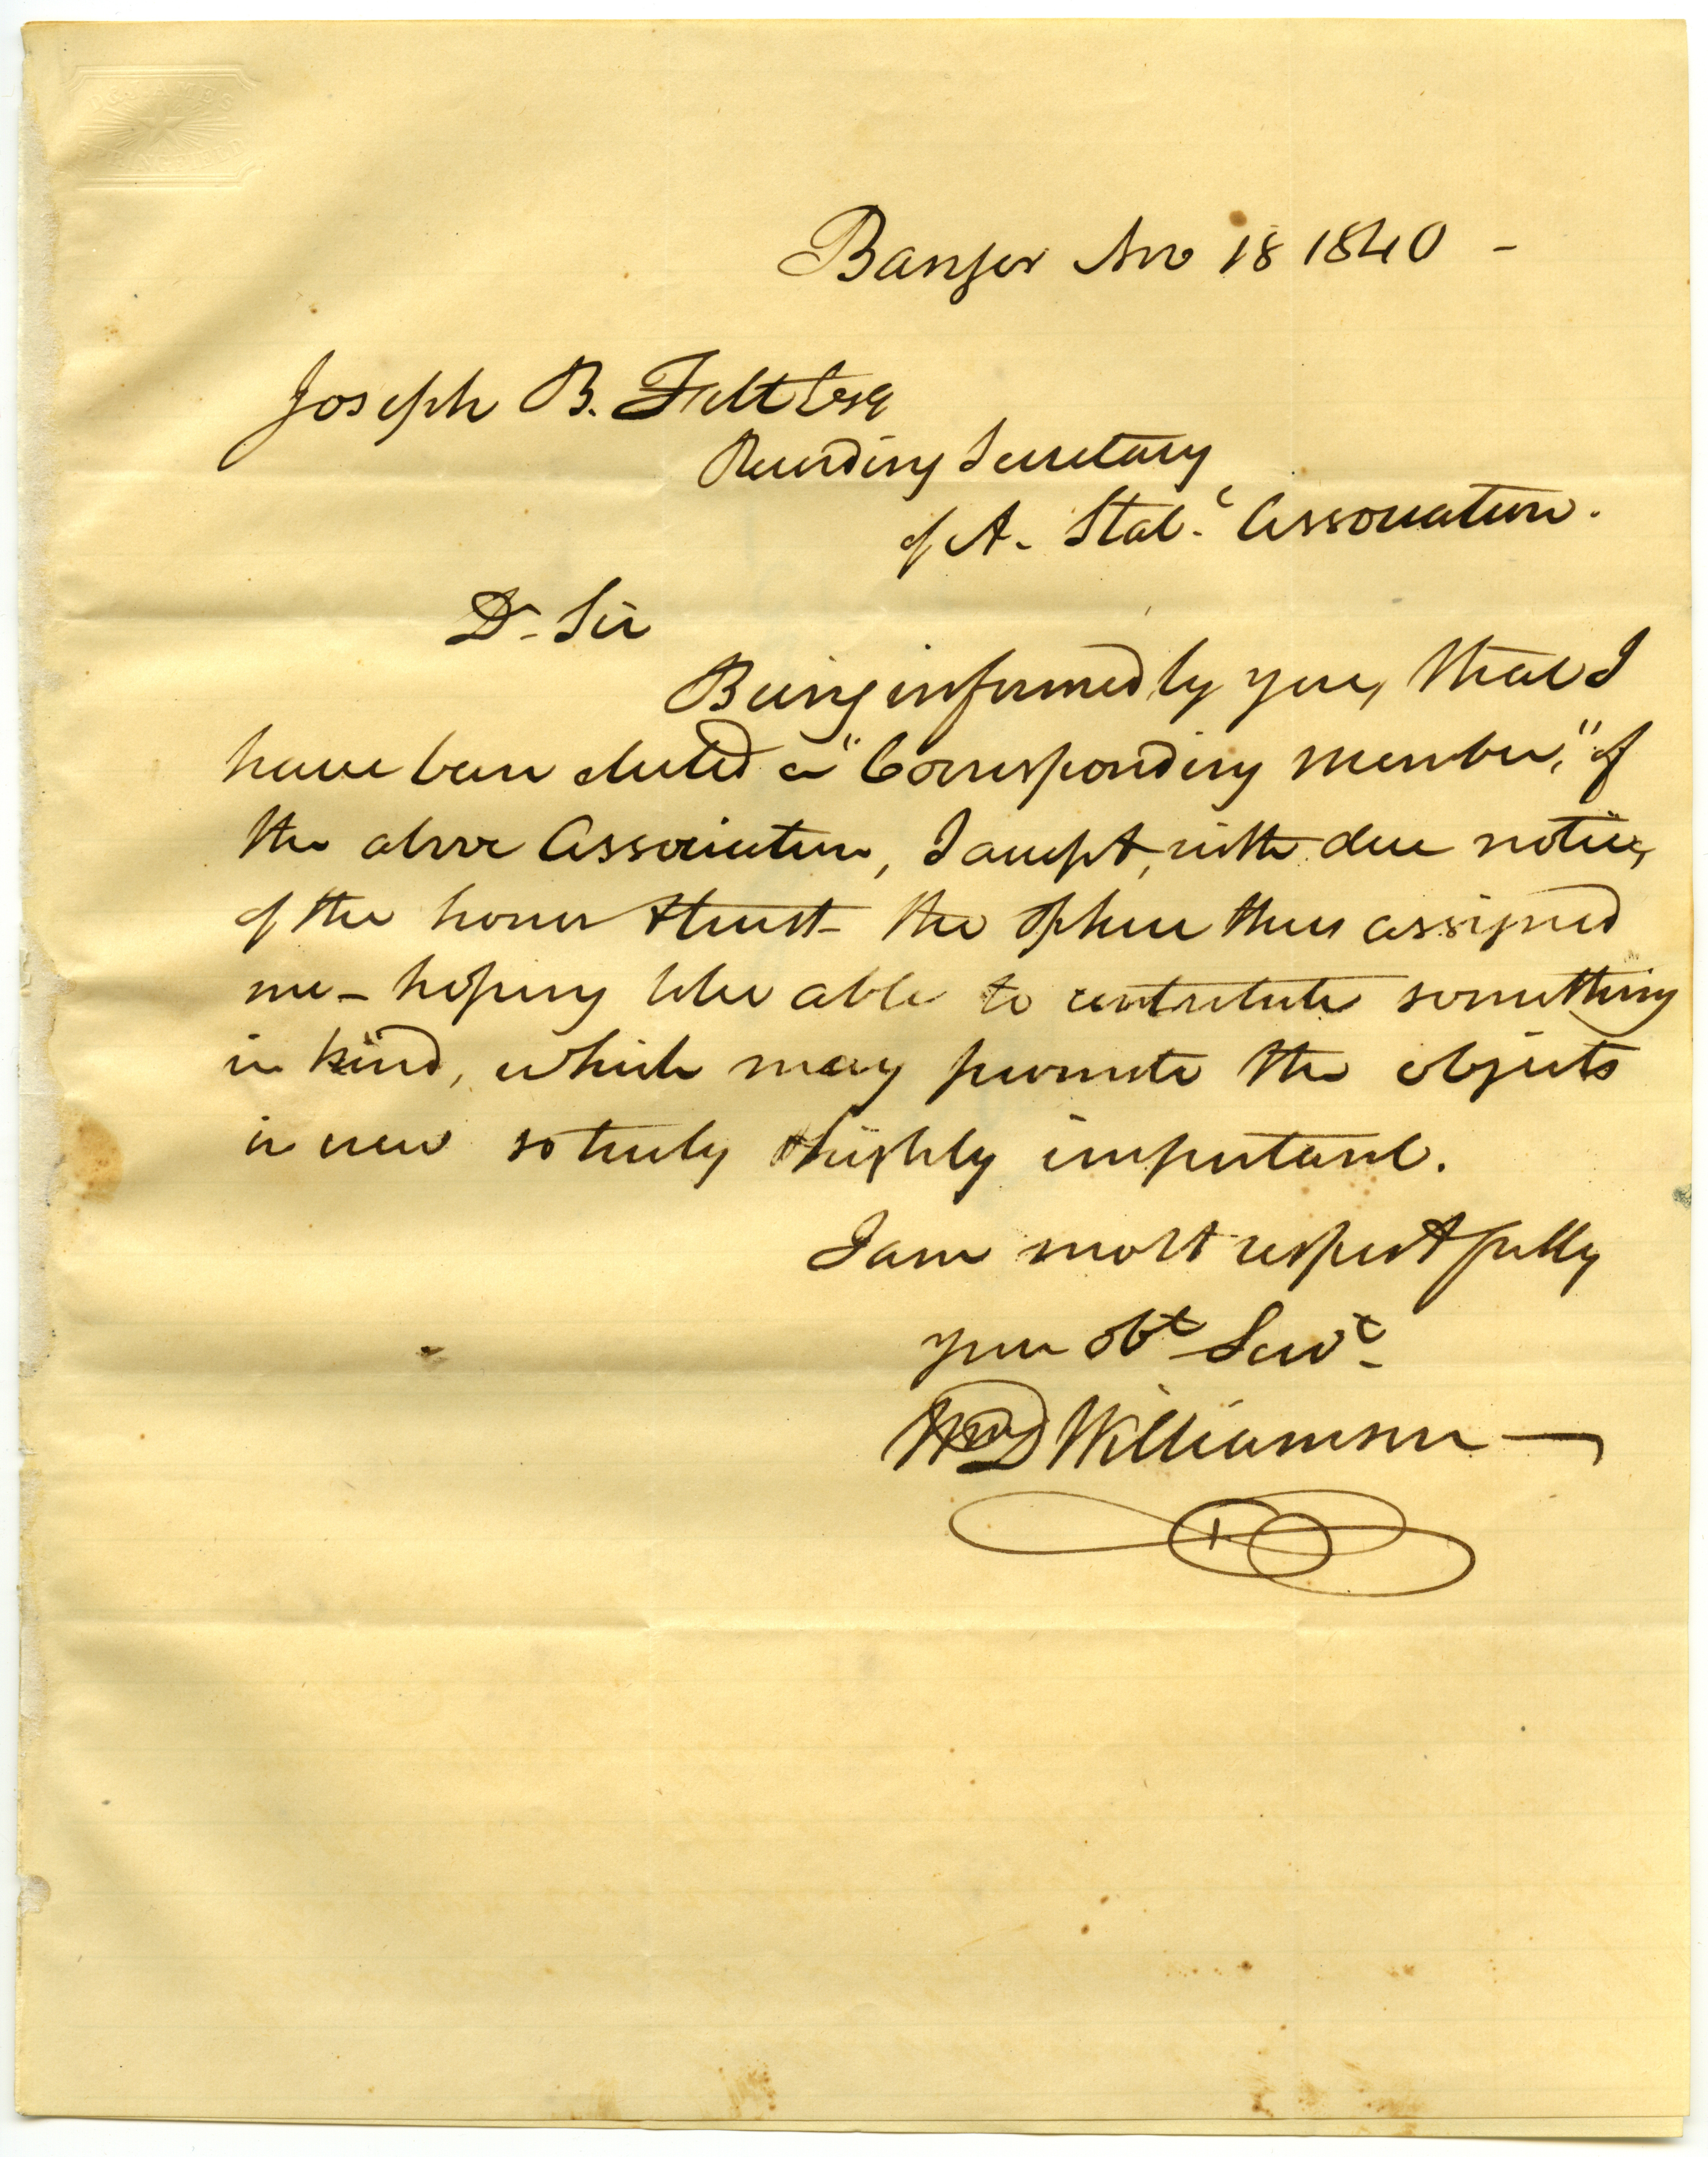 D & J AMES
SPRINGFIELD
Bangor Nov 18 1840 -
Joseph B. Felt Esq
Recording Secretary
of A. Stat.c Association.
Dr Sir
Being informed by you, that I
have been elected a "Corresponding member," of
the above Association, I accept, with due notice,
of the honor & trust - the sphere thus assigned
me - hoping to be able to contribute something
in kind, which may promote the objects
in view so truly & highly important.
I am most respectfully
your obt Servt
Wm D Williamson